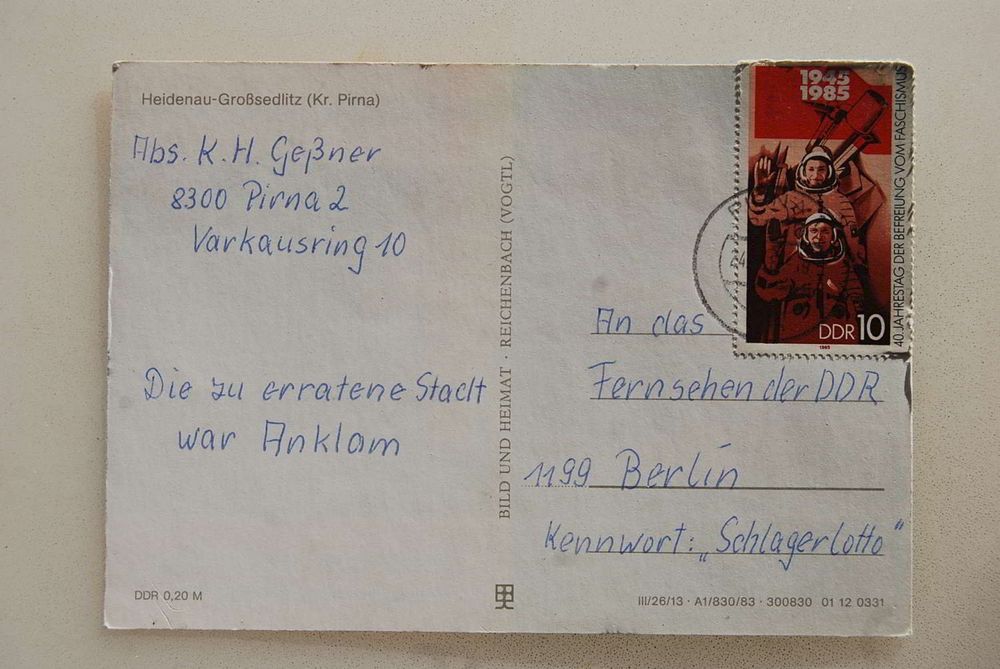 Heidenau-Großsedlitz (Kr. Pirna)
Abs. K. H. Geßner
8300 Pirna 2
Varkausring 10
Die zu erratene Stadt
war Anklam
DDR 0,20 M
BILD UND HEIMAT · REICHENBACH (VOGTL)
1945
1985
40. JAHRESTAG DER BEFREIUNG VOM FASCHISMUS
DDR 10
1985
An das
Fernsehen der DDR
1199 Berlin
Kennwort: „Schlagerlotto"
III/26/13 · A1/830/83 · 300830 01 12 0331